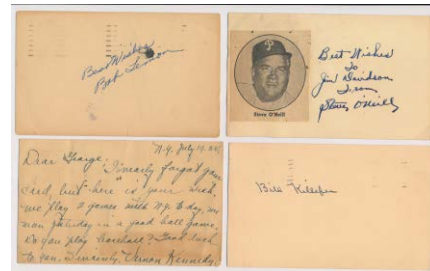 Best Wishes
Bob Lemon
Steve O'Neill
Best Wishes
To
Jim Davidson
From
Steve O'Neill
N.Y. July 19,
Dear George:
Sincerely forgot your
card, but here is your wish.
we play 2 games with N.Y. to day, we
won yesterday in a good ball game.
Do you play baseball? Good luck
to you. Sincerely, Vernon Kennedy.
Bill Killefer